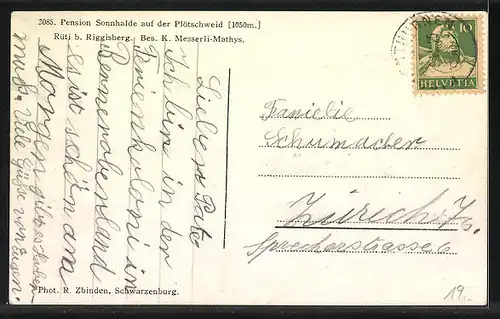 2085. Pension Sonnhalde auf der Plötschweid [1050m.]
Rüti b. Riggisberg. Bes. K. Messerli-Mathys.
Lieber Pate
Ich bin in der
Ferienkoloni in
Berneroberland
es ist schön am
Morgen gibt es Haber-
mus. Viele Grüße von Eugen.
Phot. R. Zbinden, Schwarzenburg.
10
HELVETIA
Familie
Schumacher
Zürich
Sprecherstrasse 6
19.-